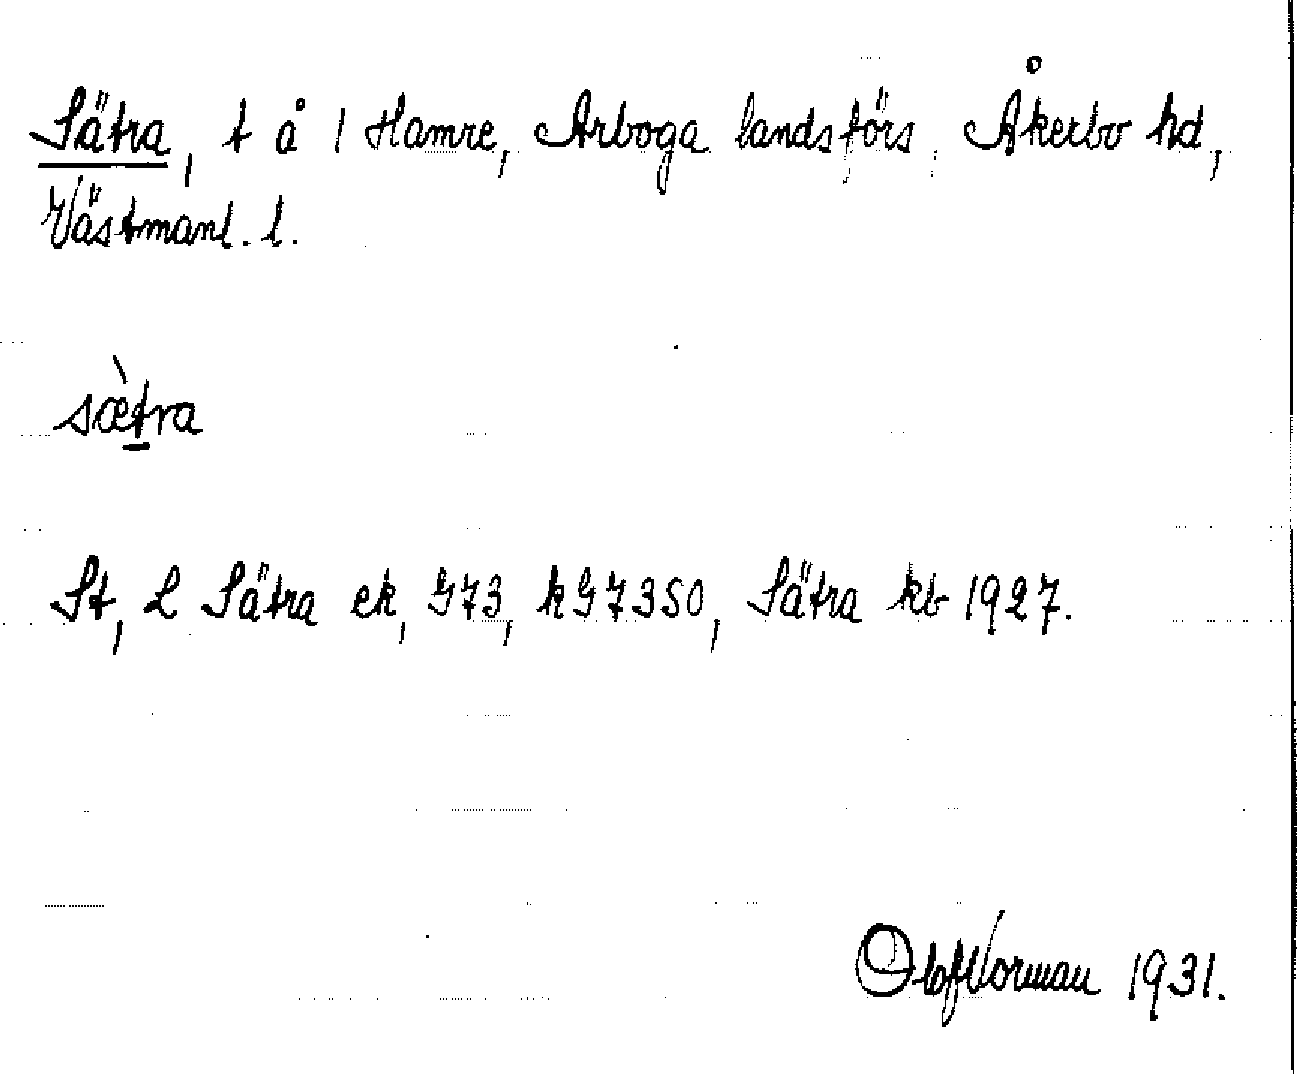 Sätra, t å 1 Hamre, Arboga landsförs, Åkerbo hd,
Västmanl. l.
sæ̀t̲ra
St, L Sätra ek, G73, kG7350, Sätra kb 1927.
Olof Norman 1931.